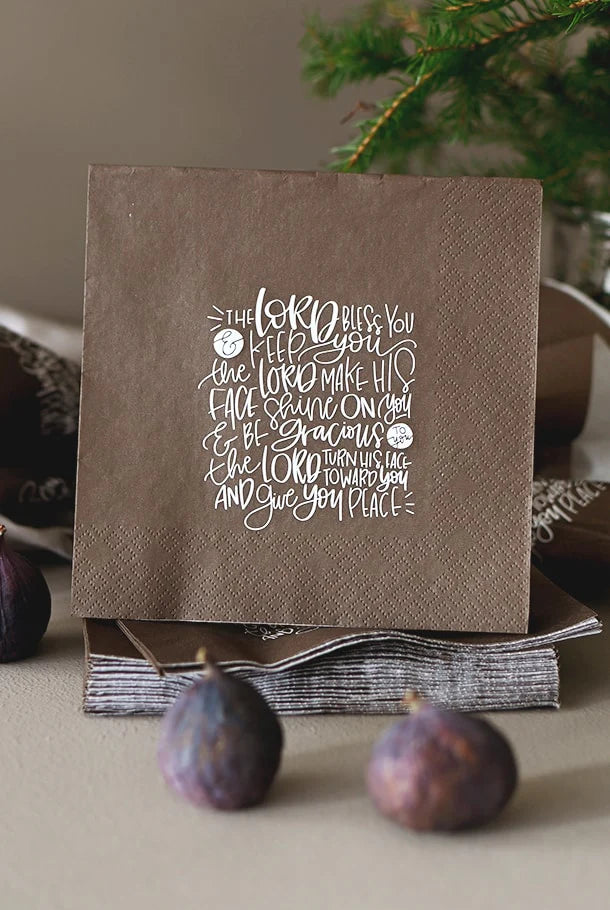 THE LORD BLESS YOU
& KEEP you
the LORD MAKE HIS
FACE Shine ON you
& BE gracious TO you
the LORD TURN HIS FACE TOWARD you
AND give you PEACE
AND
you PEACE